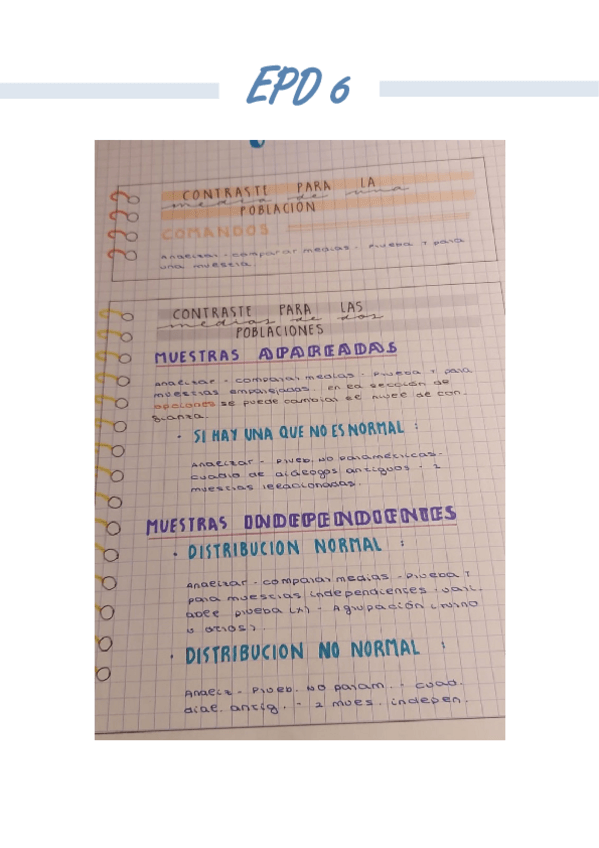 EPD 6
CONTRASTE PARA LA
media de una
POBLACIÓN
COMANDOS
Analizar - comparar medias - Prueba T para
una muestra.
CONTRASTE PARA LAS
medias de dos
POBLACIONES
MUESTRAS APAREADAS
Analizar - comparar medias - Prueba T para
muestras emparejadas. En la sección de
opciones se puede cambiar el nivel de con.
fianza.
· SI HAY UNA QUE NO ES NORMAL :
Analizar - Prueb. NO paramétricas -
cuadro de diálogos antiguos - 2
muestras relacionadas.
MUESTRAS INDEPENDIENTES
· DISTRIBUCION NORMAL :
Analizar - comparar medias - Prueba T
para muestras independientes - vari.
able prueba (x) - Agrupación (vino
u otros).
· DISTRIBUCION NO NORMAL :
Analiz - Prueb. NO param. - cuad.
dial. antig. - 2 mues. indepen.